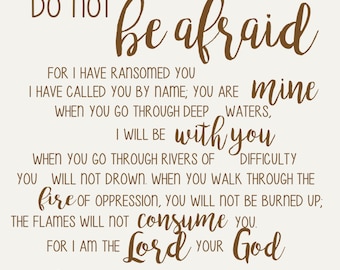 DO NOT be afraid
FOR I HAVE RANSOMED YOU
I HAVE CALLED YOU BY NAME; YOU ARE mine
WHEN YOU GO THROUGH DEEP WATERS,
I WILL BE with you
WHEN YOU GO THROUGH RIVERS OF DIFFICULTY
YOU WILL NOT DROWN. WHEN YOU WALK THROUGH THE
fire OF OPPRESSION, YOU WILL NOT BE BURNED UP;
THE FLAMES WILL NOT consume YOU.
FOR I AM THE Lord YOUR God